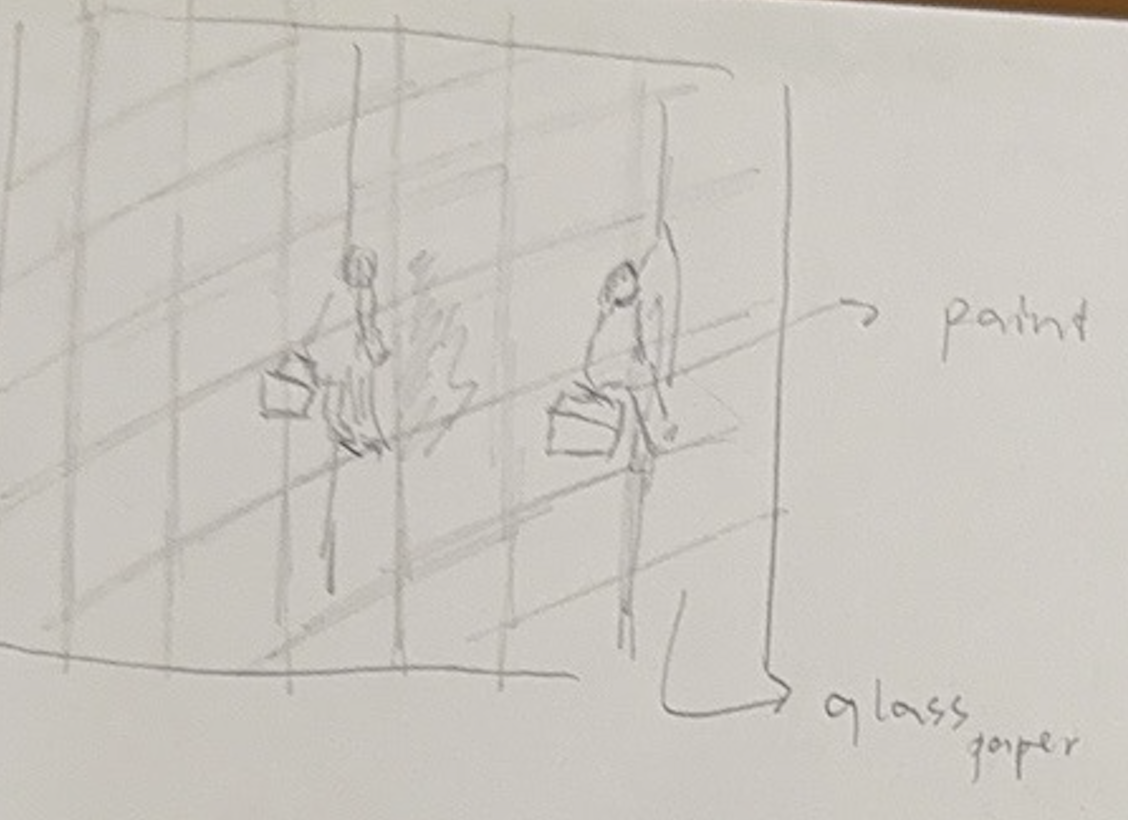 paint
glass
paper